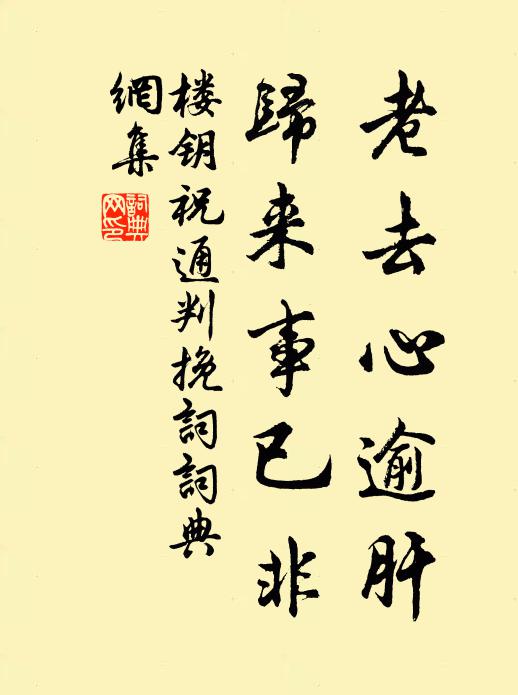 老去心逾肝
歸来事已非
楼钥祝通判挽詞詞典
網集
詞典網印